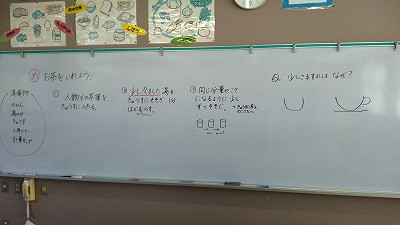 め お茶をいれよう。
準備するもの
やかん
湯のみ
きゅうす
計量カップ
① 人数分の茶葉を
きゅうすに入れる。
② 少し冷ました湯を
きゅうすにそそぎ、1分
ほどむらす。
③ 同じ分量やこさ
になるように少し
ずつそそぐ。
Q. 少しさますのはなぜ?